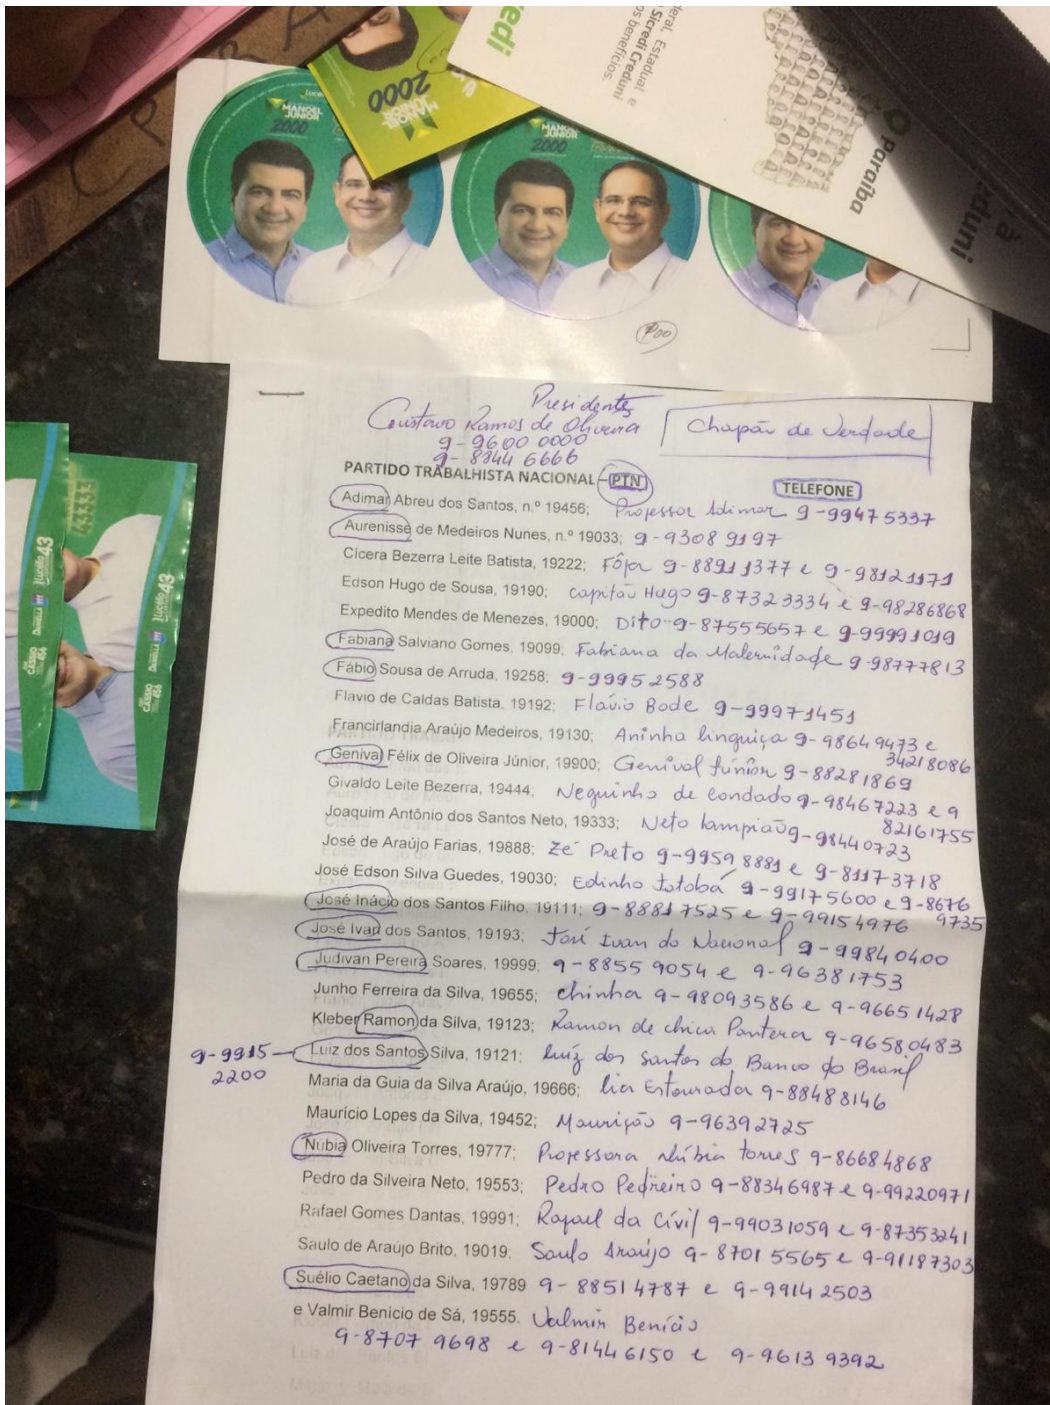 edi
deral, Estadual e
Sicredi Creduni
os benefícios.
Paraíba
à
eduni
2000
MANOEL
JUNIOR
MANOEL
JUNIOR
2000
MANOEL
JUNIOR
2000
Presidente
Gustavo Ramos de Oliveira
9-9600 0000
9-8844 6666
Chapão de Verdade
PARTIDO TRABALHISTA NACIONAL – PTN
TELEFONE
Adimar Abreu dos Santos, n.º 19456; Professor Adimar 9-99475337
Aurenisse de Medeiros Nunes, n.º 19033; 9-9308 9197
Cícera Bezerra Leite Batista, 19222; Fôfa 9-88911377 e 9-98121171
Edson Hugo de Sousa, 19190; Capitão Hugo 9-87323334 e 9-98286868
Expedito Mendes de Menezes, 19000; Dito 9-87555657 e 9-99991019
Fabiana Salviano Gomes, 19099; Fabiana da Maternidade 9-98777813
Fábio Sousa de Arruda, 19258; 9-9995 2588
Flavio de Caldas Batista, 19192; Flávio Bode 9-99971451
Francirlandia Araújo Medeiros, 19130; Aninha linguiça 9-98649473 e
34218086
Genival Félix de Oliveira Júnior, 19900; Genival Júnior 9-88281869
Givaldo Leite Bezerra, 19444; Neguinho de Condado 9-98467223 e 9
82161755
Joaquim Antônio dos Santos Neto, 19333; Neto Lampião 9-98440723
José de Araújo Farias, 19888; Zé Preto 9-9959 8881 e 9-81173718
José Edson Silva Guedes, 19030; Edinho Jatobá 9-99175600 e 9-8676
9735
José Inácio dos Santos Filho, 19111; 9-8881 7525 e 9-99154976
José Ivan dos Santos, 19193; José Ivan do Nacional 9-99840400
Judivan Pereira Soares, 19999; 9-8855 9054 e 9-96381753
Junho Ferreira da Silva, 19655; chinha 9-98093586 e 9-96651428
Kleber Ramon da Silva, 19123; Ramon de chica Pantera 9-96580483
9-9915
2200
Luiz dos Santos Silva, 19121; Luiz dos Santos do Banco do Brasil
Maria da Guia da Silva Araújo, 19666; lia Estourada 9-88488146
Maurício Lopes da Silva, 19452; Maurição 9-96392725
Núbia Oliveira Torres, 19777; Professora Núbia Torres 9-86684868
Pedro da Silveira Neto, 19553; Pedro Pedreiro 9-88346987 e 9-99220971
Rafael Gomes Dantas, 19991; Rafael da Civil 9-99031059 e 9-87353241
Saulo de Araújo Brito, 19019; Saulo Araújo 9-8701 5565 e 9-91187303
Suélio Caetano da Silva, 19789 9-8851 4787 e 9-9914 2503
e Valmir Benício de Sá, 19555. Valmir Benício
9-8707 9698 e 9-81446150 e 9-9613 9392
43333
Lucélio 43
DANIELLA 111
CÁSSIO
456
Lucélio 43
DANIELLA 111
CÁSSIO
456